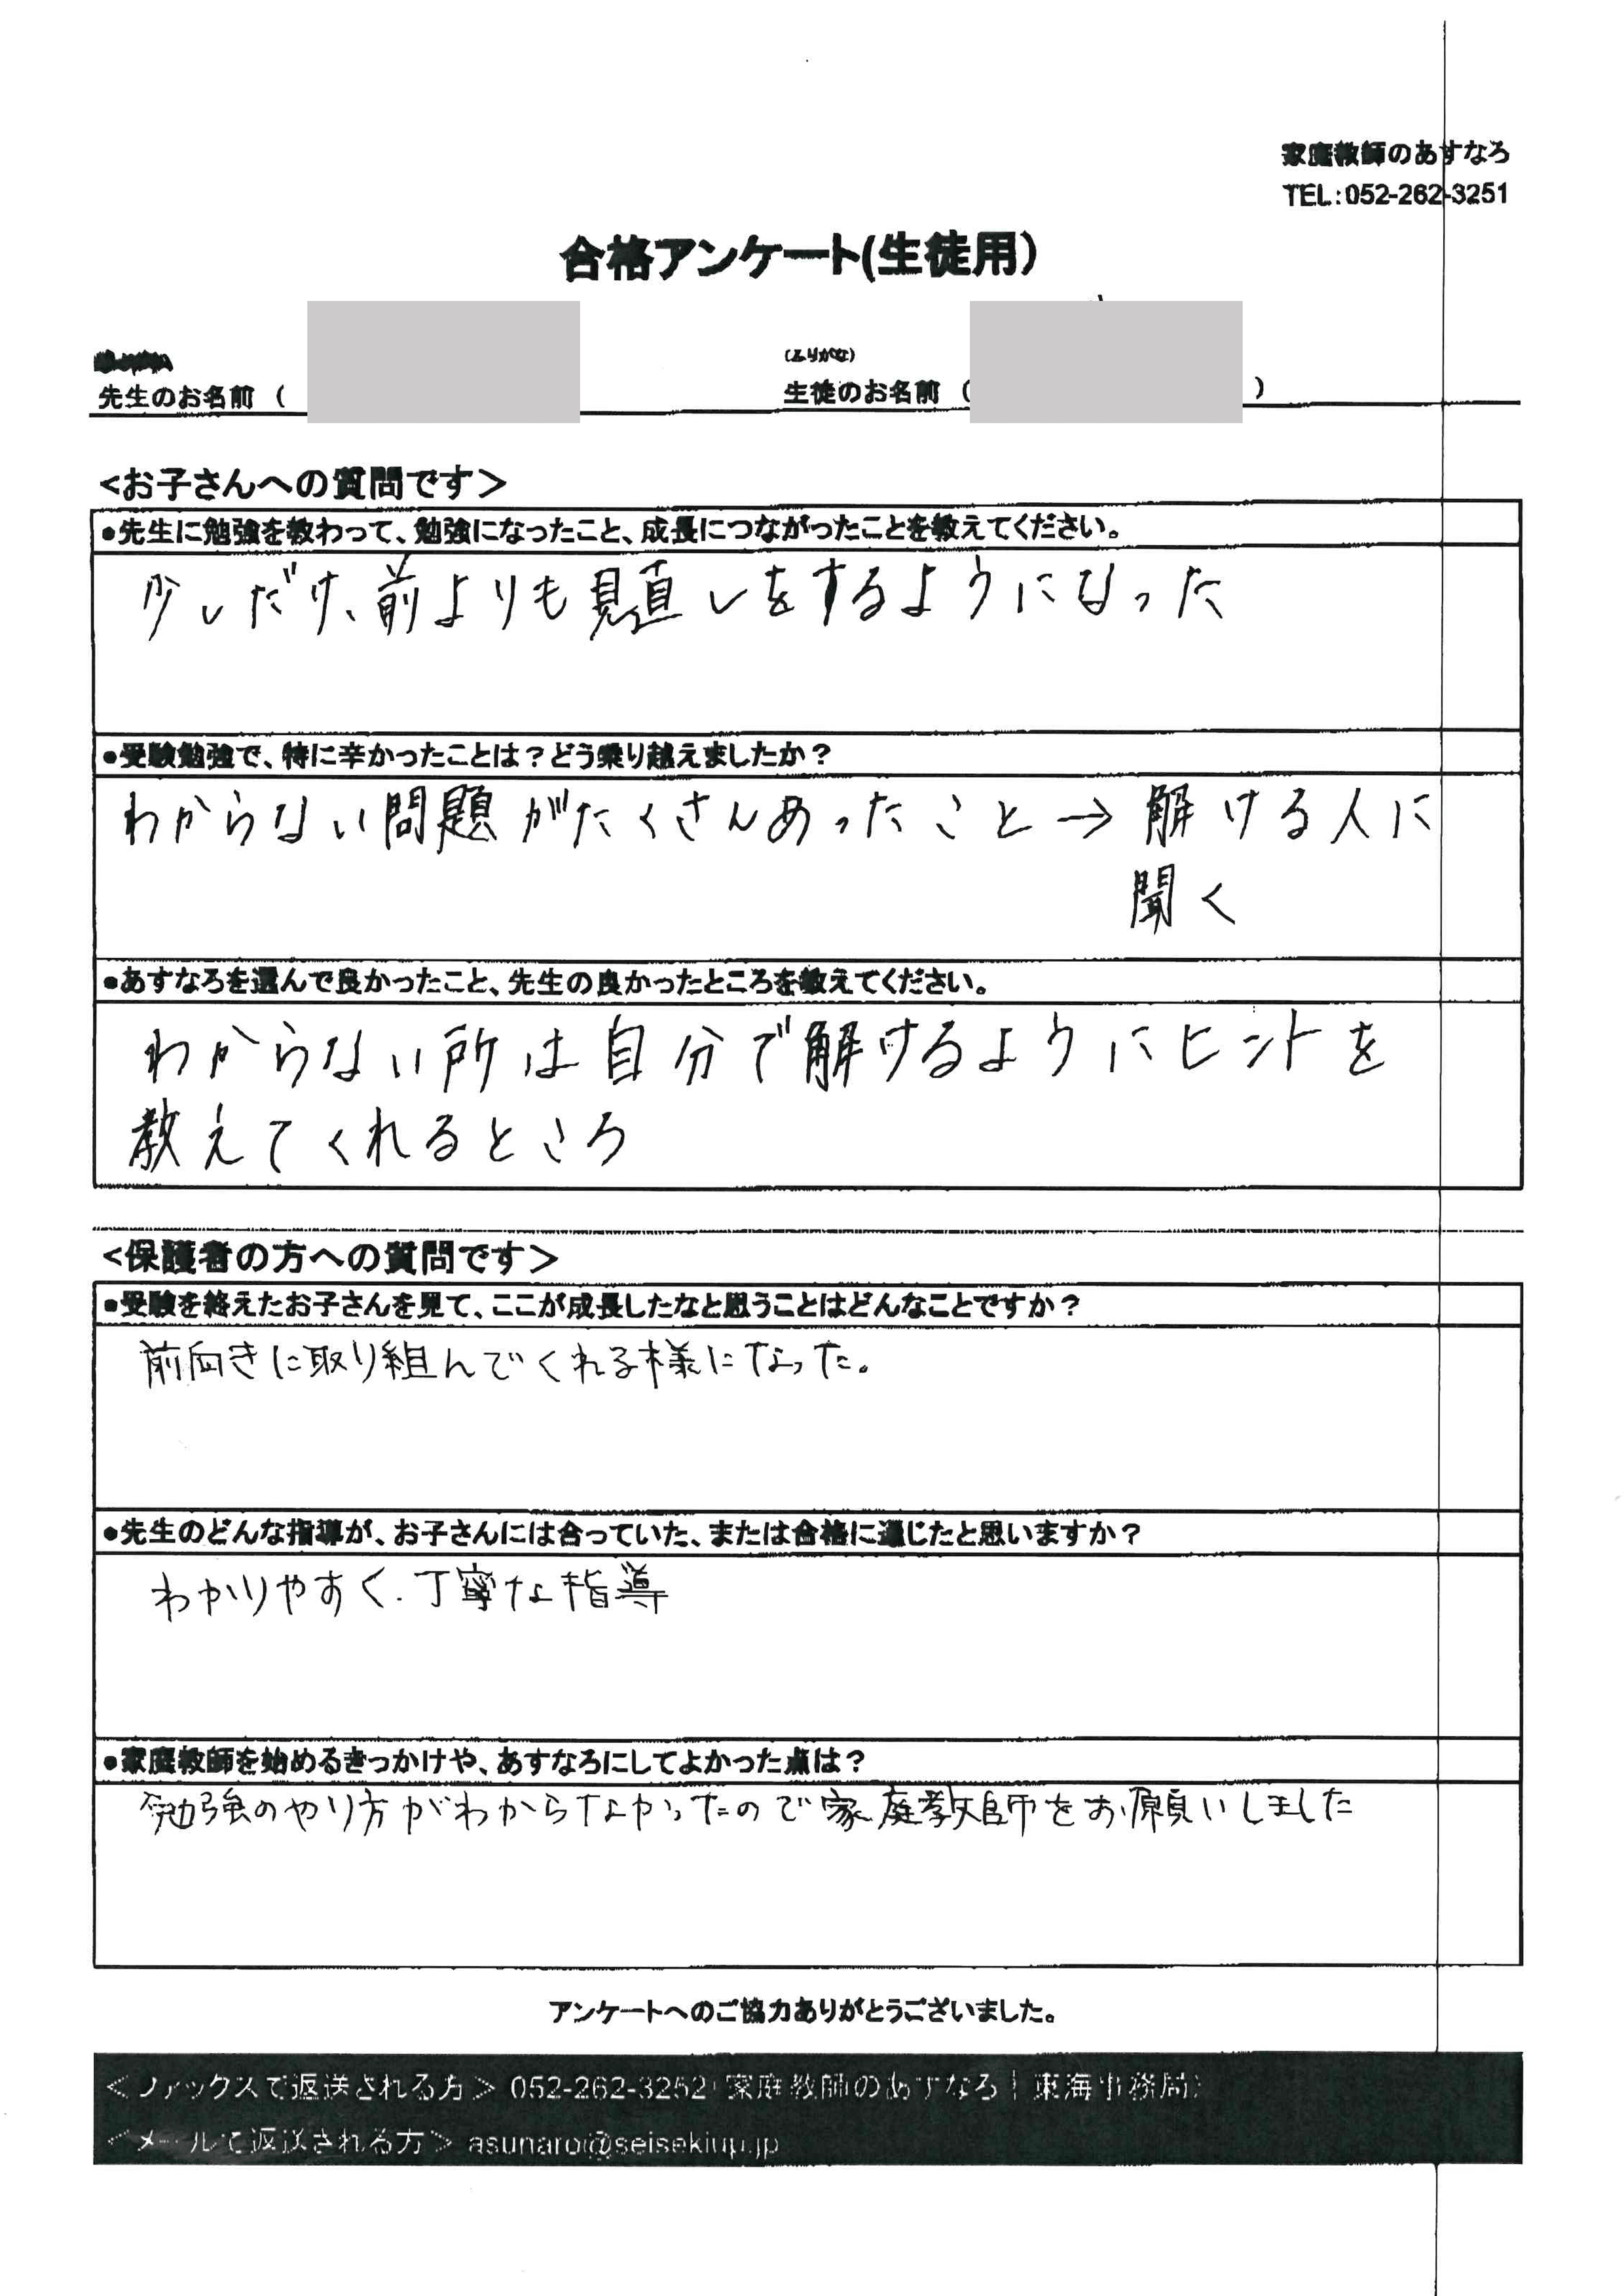 家庭教師のあすなろ
TEL:052-262-3251
合格アンケート(生徒用)
(ふりがな)
先生のお名前 (
生徒のお名前 ( )
<お子さんへの質問です>
●先生に勉強を教わって、勉強になったこと、成長につながったことを教えてください。
少しだけ、前よりも見直しをするようになった
●受験勉強で、特に辛かったことは?どう乗り越えましたか?
わからない問題がたくさんあったこと→解ける人に
聞く
●あすなろを選んで良かったこと、先生の良かったところを教えてください。
わからない所は自分で解けるようにヒントを
教えてくれるところ
<保護者の方への質問です>
●受験を終えたお子さんを見て、ここが成長したなと思うことはどんなことですか?
前向きに取り組んでくれる様になった。
●先生のどんな指導が、お子さんには合っていた、または合格に通じたと思いますか?
わかりやすく、丁寧な指導
●家庭教師を始めるきっかけや、あすなろにしてよかった点は?
勉強のやり方がわからなかったので家庭教師をお願いしました
アンケートへのご協力ありがとうございました。
<ファックスで返送される方> 052-262-3252(家庭教師のあすなろ|東海事務局)
<メールで返送される方> asunaro@seisekiup.jp